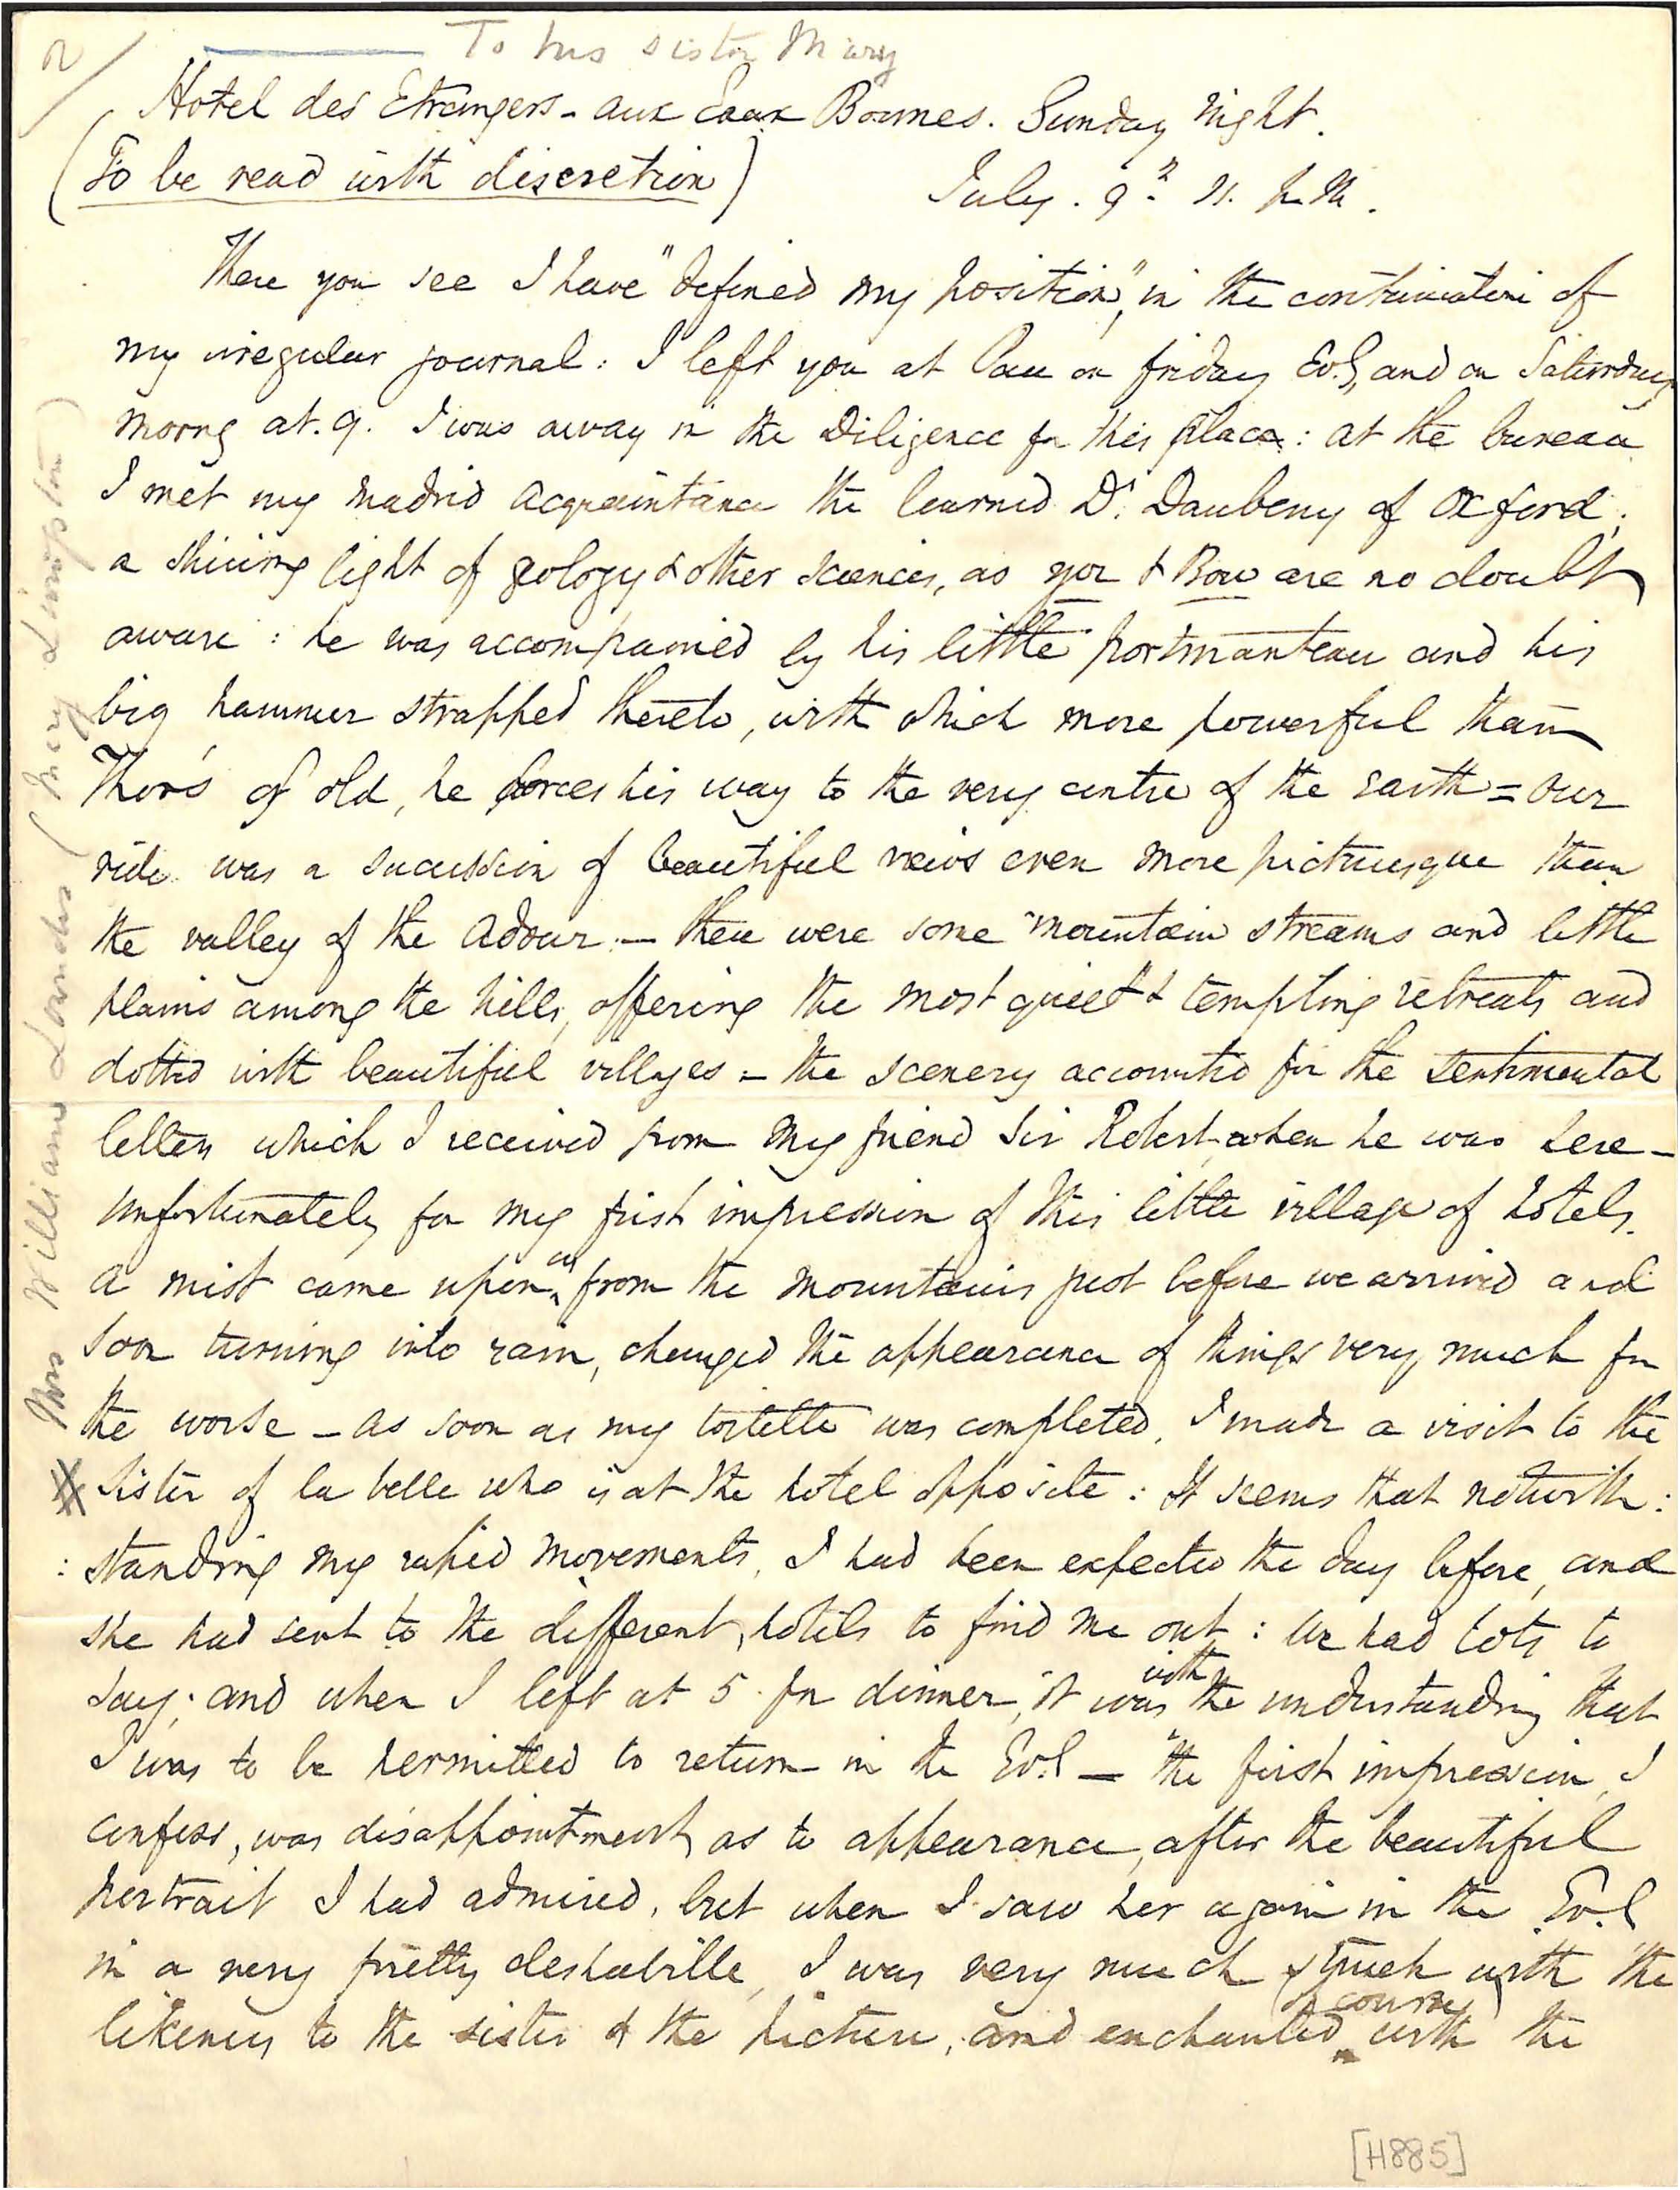 2/
To his sister Mary
Hotel des Etrangers - aux Eaux Bonnes. Sunday night.
(To be read with discretion)
July. 9th 11. P.M.
There you see I have "defined my position," in the continuation of
my irregular journal: I left you at Pau on friday Evg, and on Saturday
morng at. 9. I was away in the Diligence for this place: at the bureau
I met my Madrid acquaintance the learned Dr. Daubeny of Oxford;
a shining light of geology & other sciences, as you & Bow are no doubt
aware: he was accompanied by his little portmanteau and his
big hammer strapped thereto, with which more powerful than
Thor's of old, he forces his way to the very centre of the earth = our
ride was a succession of beautiful views even more picturesque than
the valley of the Adour: - there were some mountain streams and little
plains among the hills, offering the most quiet & tempting retreats and
dotted with beautiful villages = the scenery accounted for the sentimental
letters which I received from my friend Sir Robert, when he was here -
unfortunately for my first impression of this little village of hotels,
a mist came upon us from the mountains just before we arrived and
soon turning into rain, changed the appearance of things very much for
the worse - as soon as my toilette was completed, I made a visit to the
sister of la belle who is at the hotel opposite: It seems that notwith:
: standing my rapid movements, I had been expected the day before, and
she had sent to the different hotels to find me out: we had lots to
say; and when I left at 5. for dinner, it was with the understanding that
I was to be permitted to return in the Evg - the first impression, I
confess, was disappointment, as to appearance, after the beautiful
portrait I had admired, but when I saw her again in the Evg
in a very pretty deshabille, I was very much struck with the
likeness to the sister & the picture, and enchanted (of course) with the
Mrs William Lowndes (Mary Limpton)
[H885]